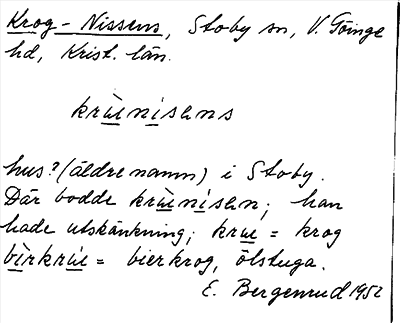 Krog-Nissens, Stoby sn, V. Göinge
hd, Krist. län.
krùenísens
hus? (äldre namn) i Stoby.
Där bodde krùenísen; han
hade utskänkning; krùe = krog
bìrkrúe = bierkrog, ölstuga.
E. Bergenrud 1952